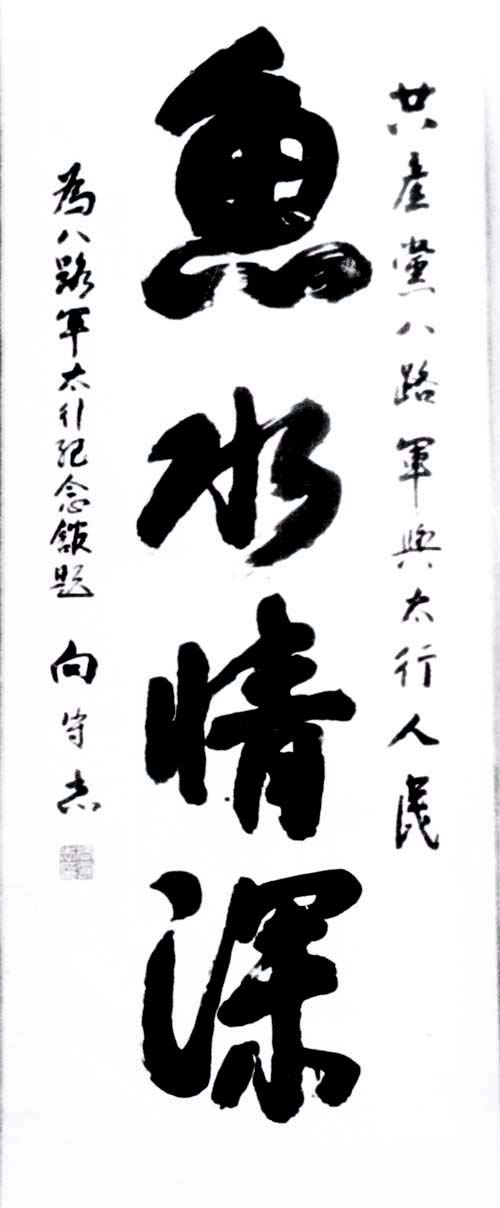 共產黨八路軍與太行人民
魚水情深
為八路軍太行紀念館題 向守志